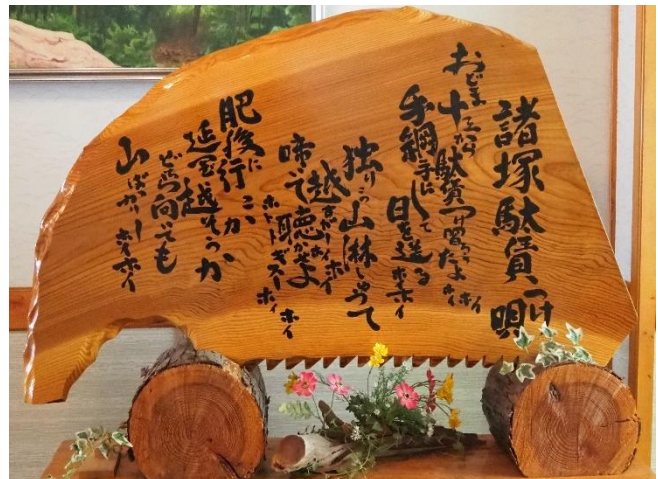 諸塚駄賃つけ唄
おどま十五から駄賃つけ習うたよ ホイホイ
手綱手にして
日を送る ホイホイ
独りこの山淋しゅて
ホイホイ
啼いて聴かせよ
ホトトギスー ホイホイ
肥後に行こか
越そうか
どちら向いても
山ばかりー ホイホイ